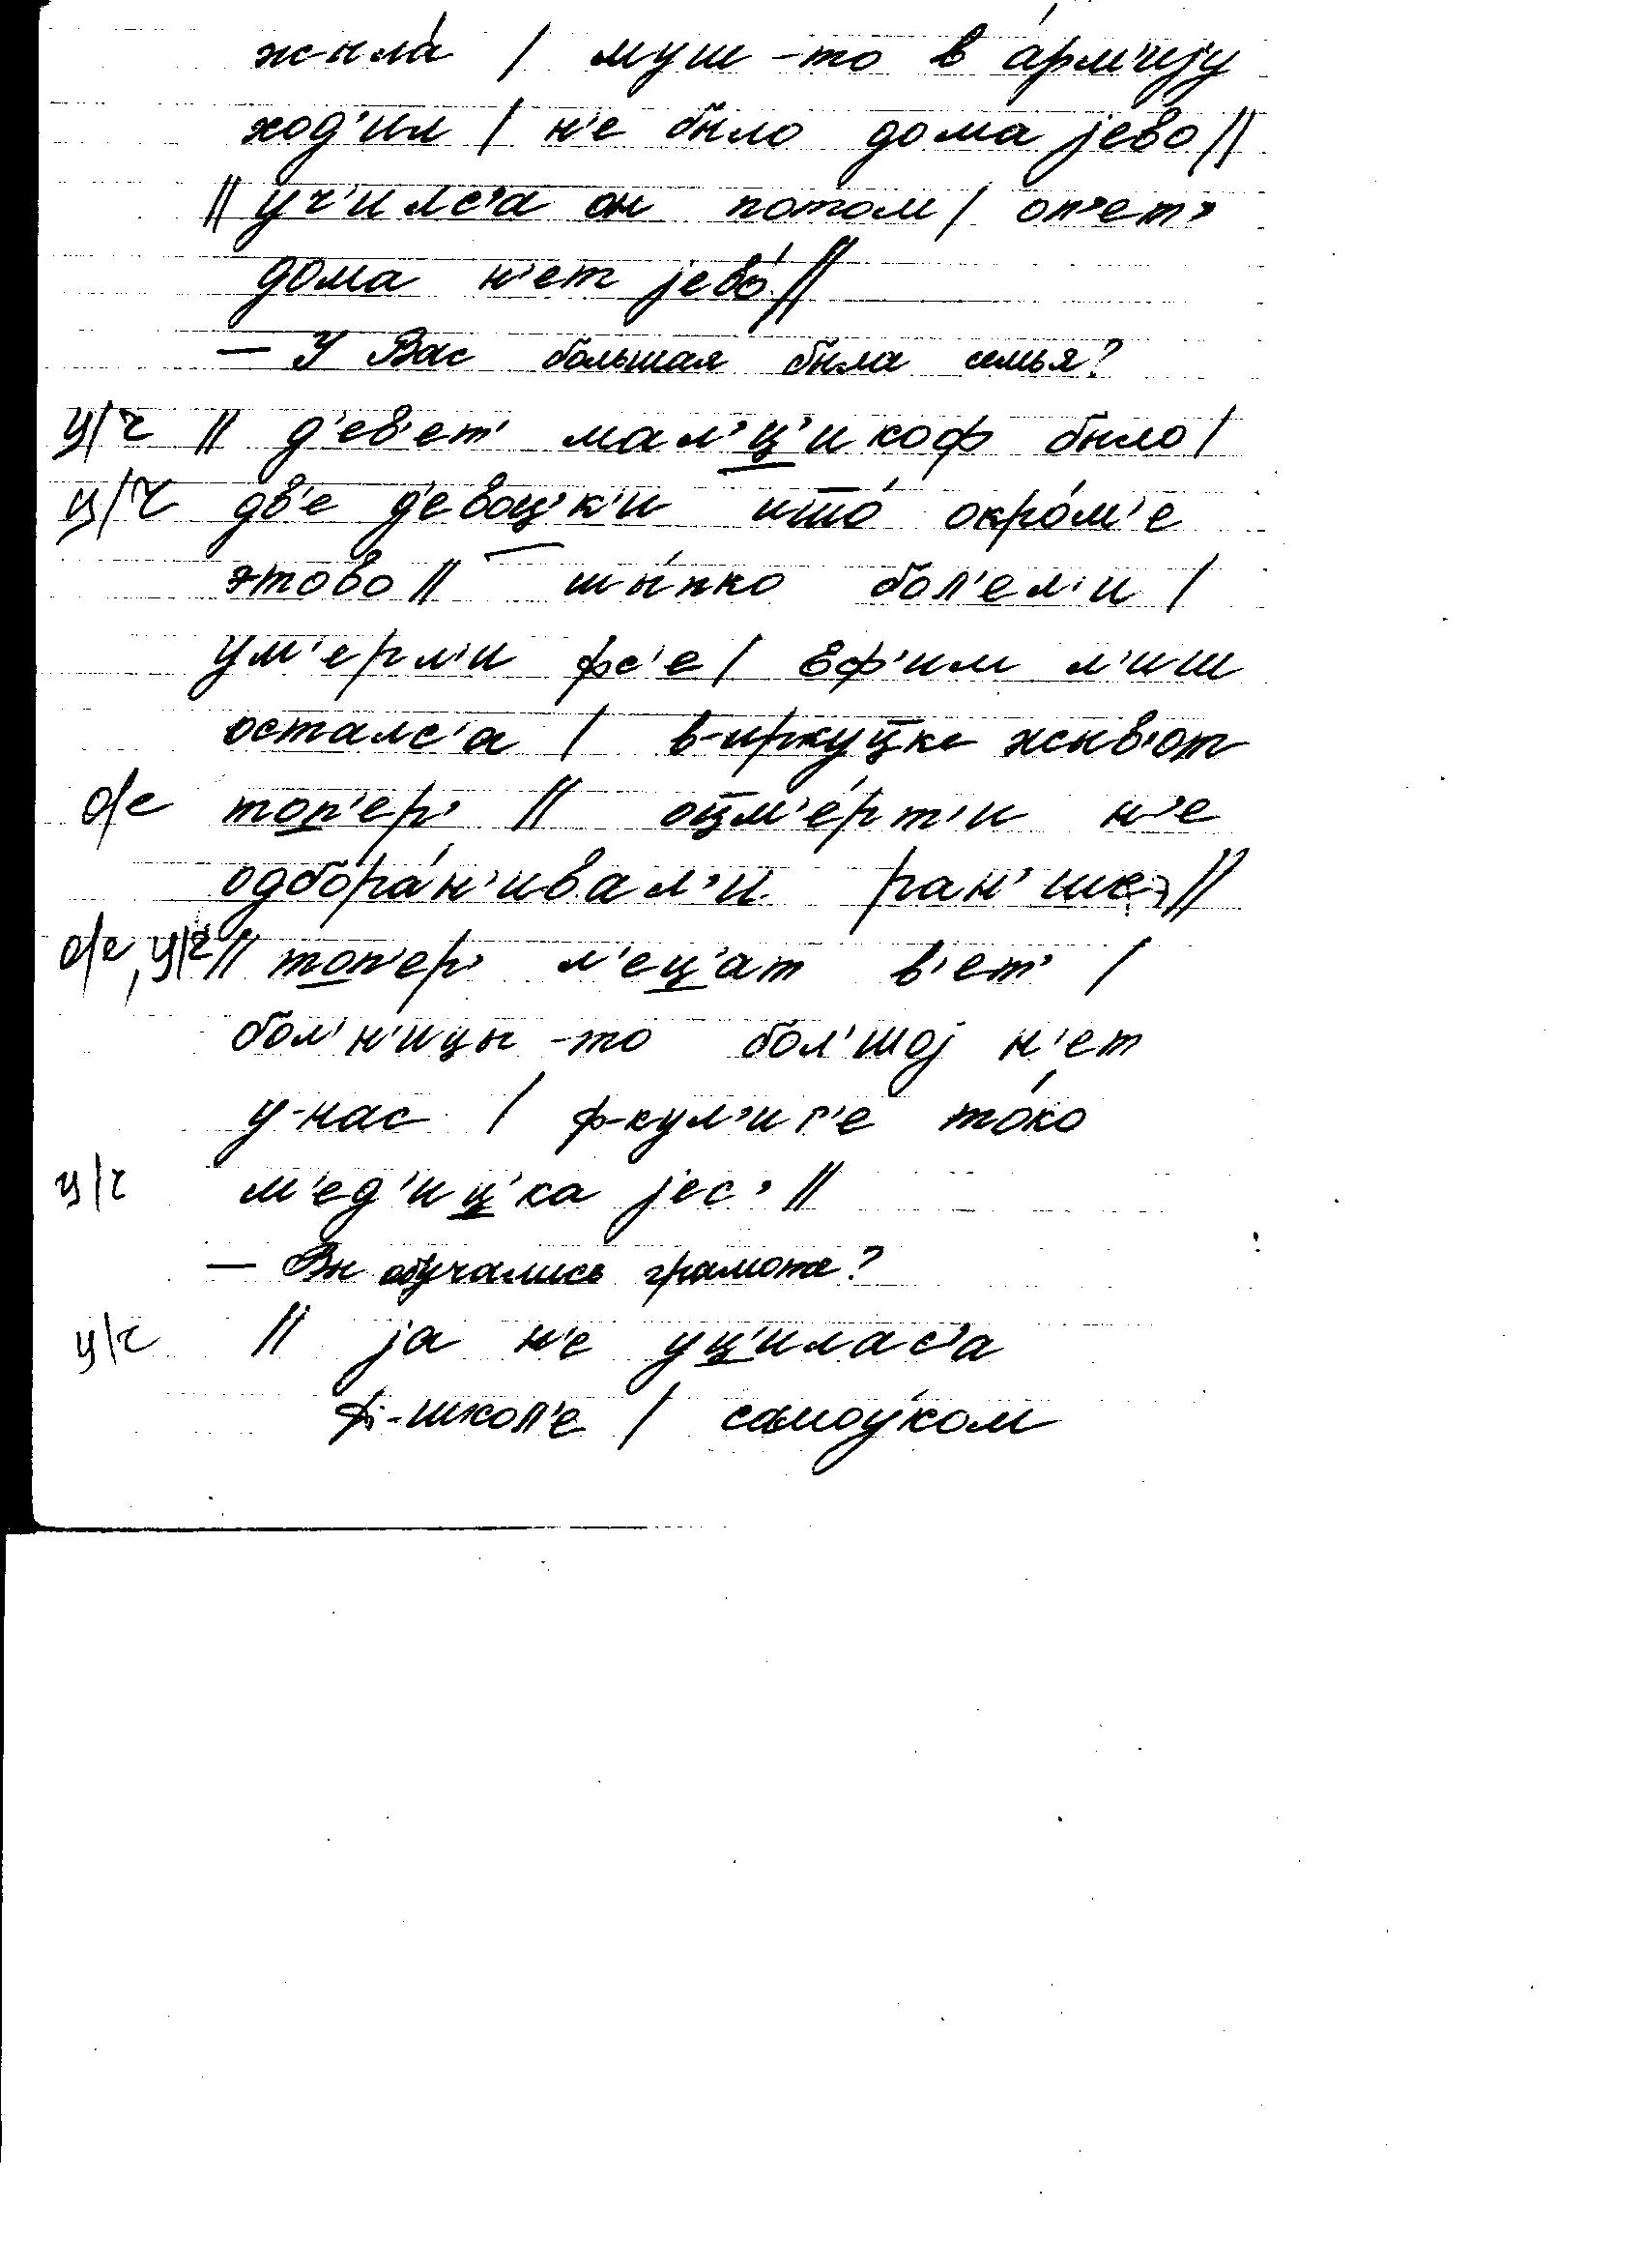 жыла́ / муш-то в а́рм'ију
ход'ил / н'е было дома јево //
// уч'илс'а он потом / оп'ет'
дома н'ет јево́ //
— У Вас большая была семья?
ц/ч // д'ев'ет' мал'ц'икоф было /
ц/ч дв'е д'евоц'к'и што́ окро́м'е
этово // шы́пко бол'ел'и /
ум'ерл'и фс'е / Еф'им л'иш
осталс'а / в-иркуцке жыв'от
о/е топ'ер' // оцм'е́рт'и н'е
одбора́н'ивал'и ран'ше //
о/е, ц/ч // топ'ер' л'ец'ат в'ет' /
бол'н'ицы-то бол'шој н'ет
у-нас / ф-кул'иг'е то́ко
ц/ч м'ед'иц'ка јес' //
— Вы обучались грамоте?
ц/ч // ја н'е уц'илас'а
ф-школ'е / самоу́ком